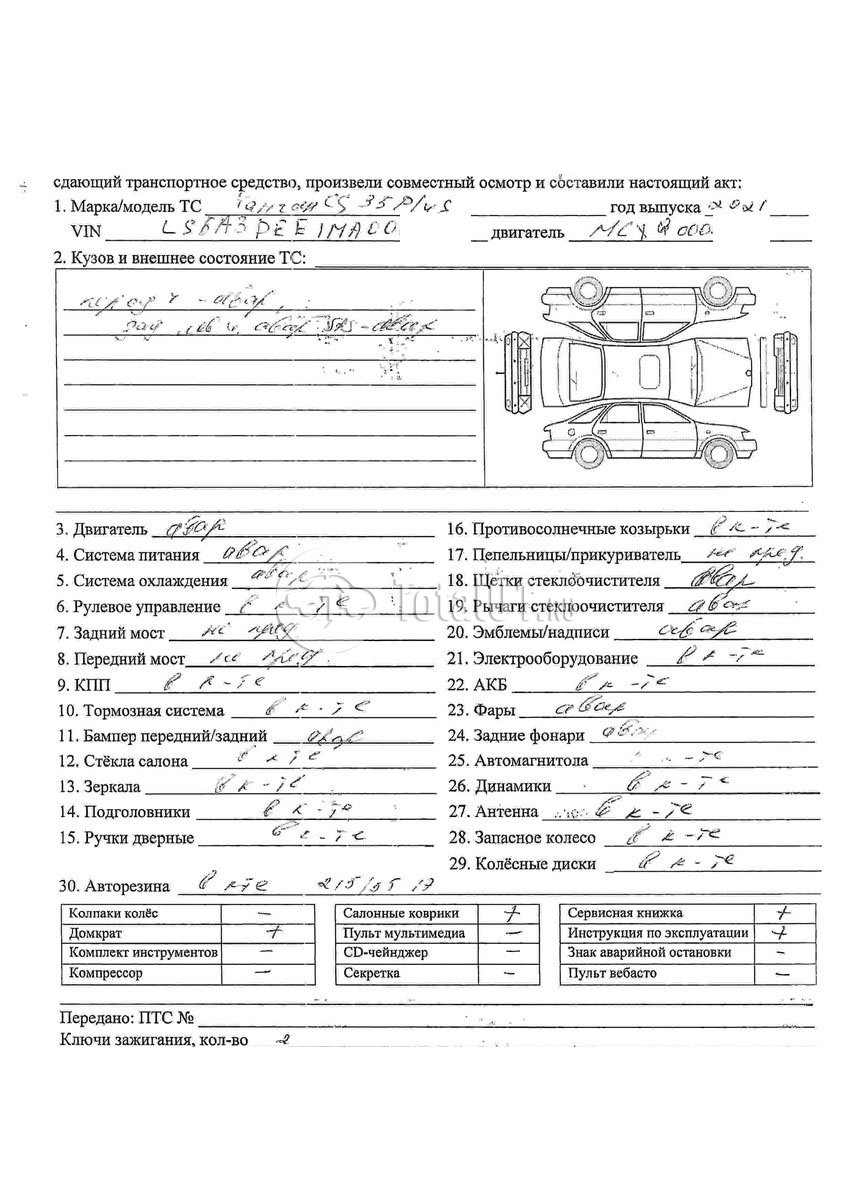 сдающий транспортное средство, произвели совместный осмотр и составили настоящий акт:
1. Марка/модель ТС CS 35 Plus год выпуска 2021
VIN LS5A3DEE1MA00 двигатель
2. Кузов и внешнее состояние ТС:
авар,
зад авар - авар
3. Двигатель авар
16. Противосолнечные козырьки в к-те
4. Система питания авар
17. Пепельницы/прикуриватель не пред.
5. Система охлаждения авар
18. Щетки стеклоочистителя авар
6. Рулевое управление в к-те
19. Рычаги стеклоочистителя авар
7. Задний мост не пред
20. Эмблемы/надписи авар
8. Передний мост не пред.
21. Электрооборудование в к-те
9. КПП в к-те
22. АКБ в к-те
10. Тормозная система в к-те
23. Фары авар
11. Бампер передний/задний авар
24. Задние фонари авар
12. Стёкла салона в к-те
25. Автомагнитола -те
13. Зеркала в к-те
26. Динамики в к-те
14. Подголовники в к-те
27. Антенна в к-те
15. Ручки дверные в к-те
28. Запасное колесо в к-те
29. Колёсные диски в к-те
30. Авторезина в кте 215/55 17
Колпаки колёс – Салонные коврики + Сервисная книжка +
Домкрат + Пульт мультимедиа – Инструкция по эксплуатации +
Комплект инструментов – CD-чейнджер – Знак аварийной остановки -
Компрессор – Секретка – Пульт вебасто -
Передано: ПТС №
Ключи зажигания, кол-во 2
Total01.RU